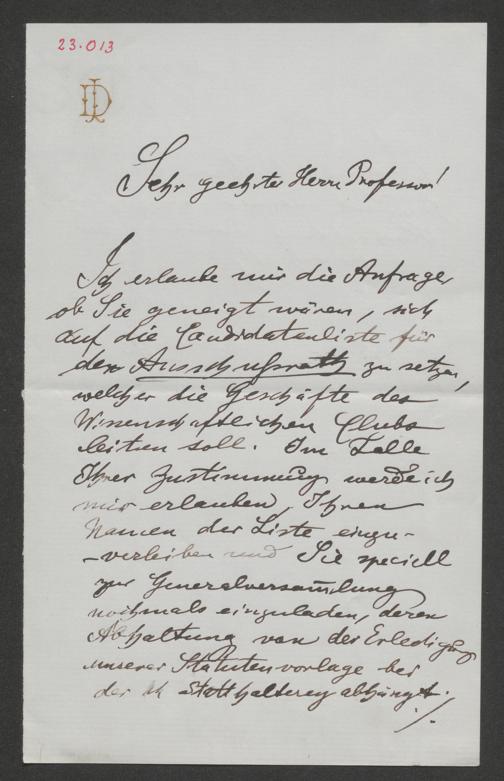 23.013
Sehr geehrter Herr Professor!
Ich erlaube mir die Anfrage,
ob Sie geneigt wären, sich
auf die Candidatenliste für
den Ausschußrath zu setzen,
welcher die Geschäfte des
Wissenschaftlichen Clubs
leiten soll. Im Falle
Ihrer Zustimmung werde ich
mir erlauben, Ihren
Namen der Liste einzu-
-verleiben und Sie speciell
zur Generalversam̅lung
nochmals einzuladen, deren
Abhaltung von der Erledigung
unserer Statutenvorlage bei
der kk Statthalterey abhängt.
./.